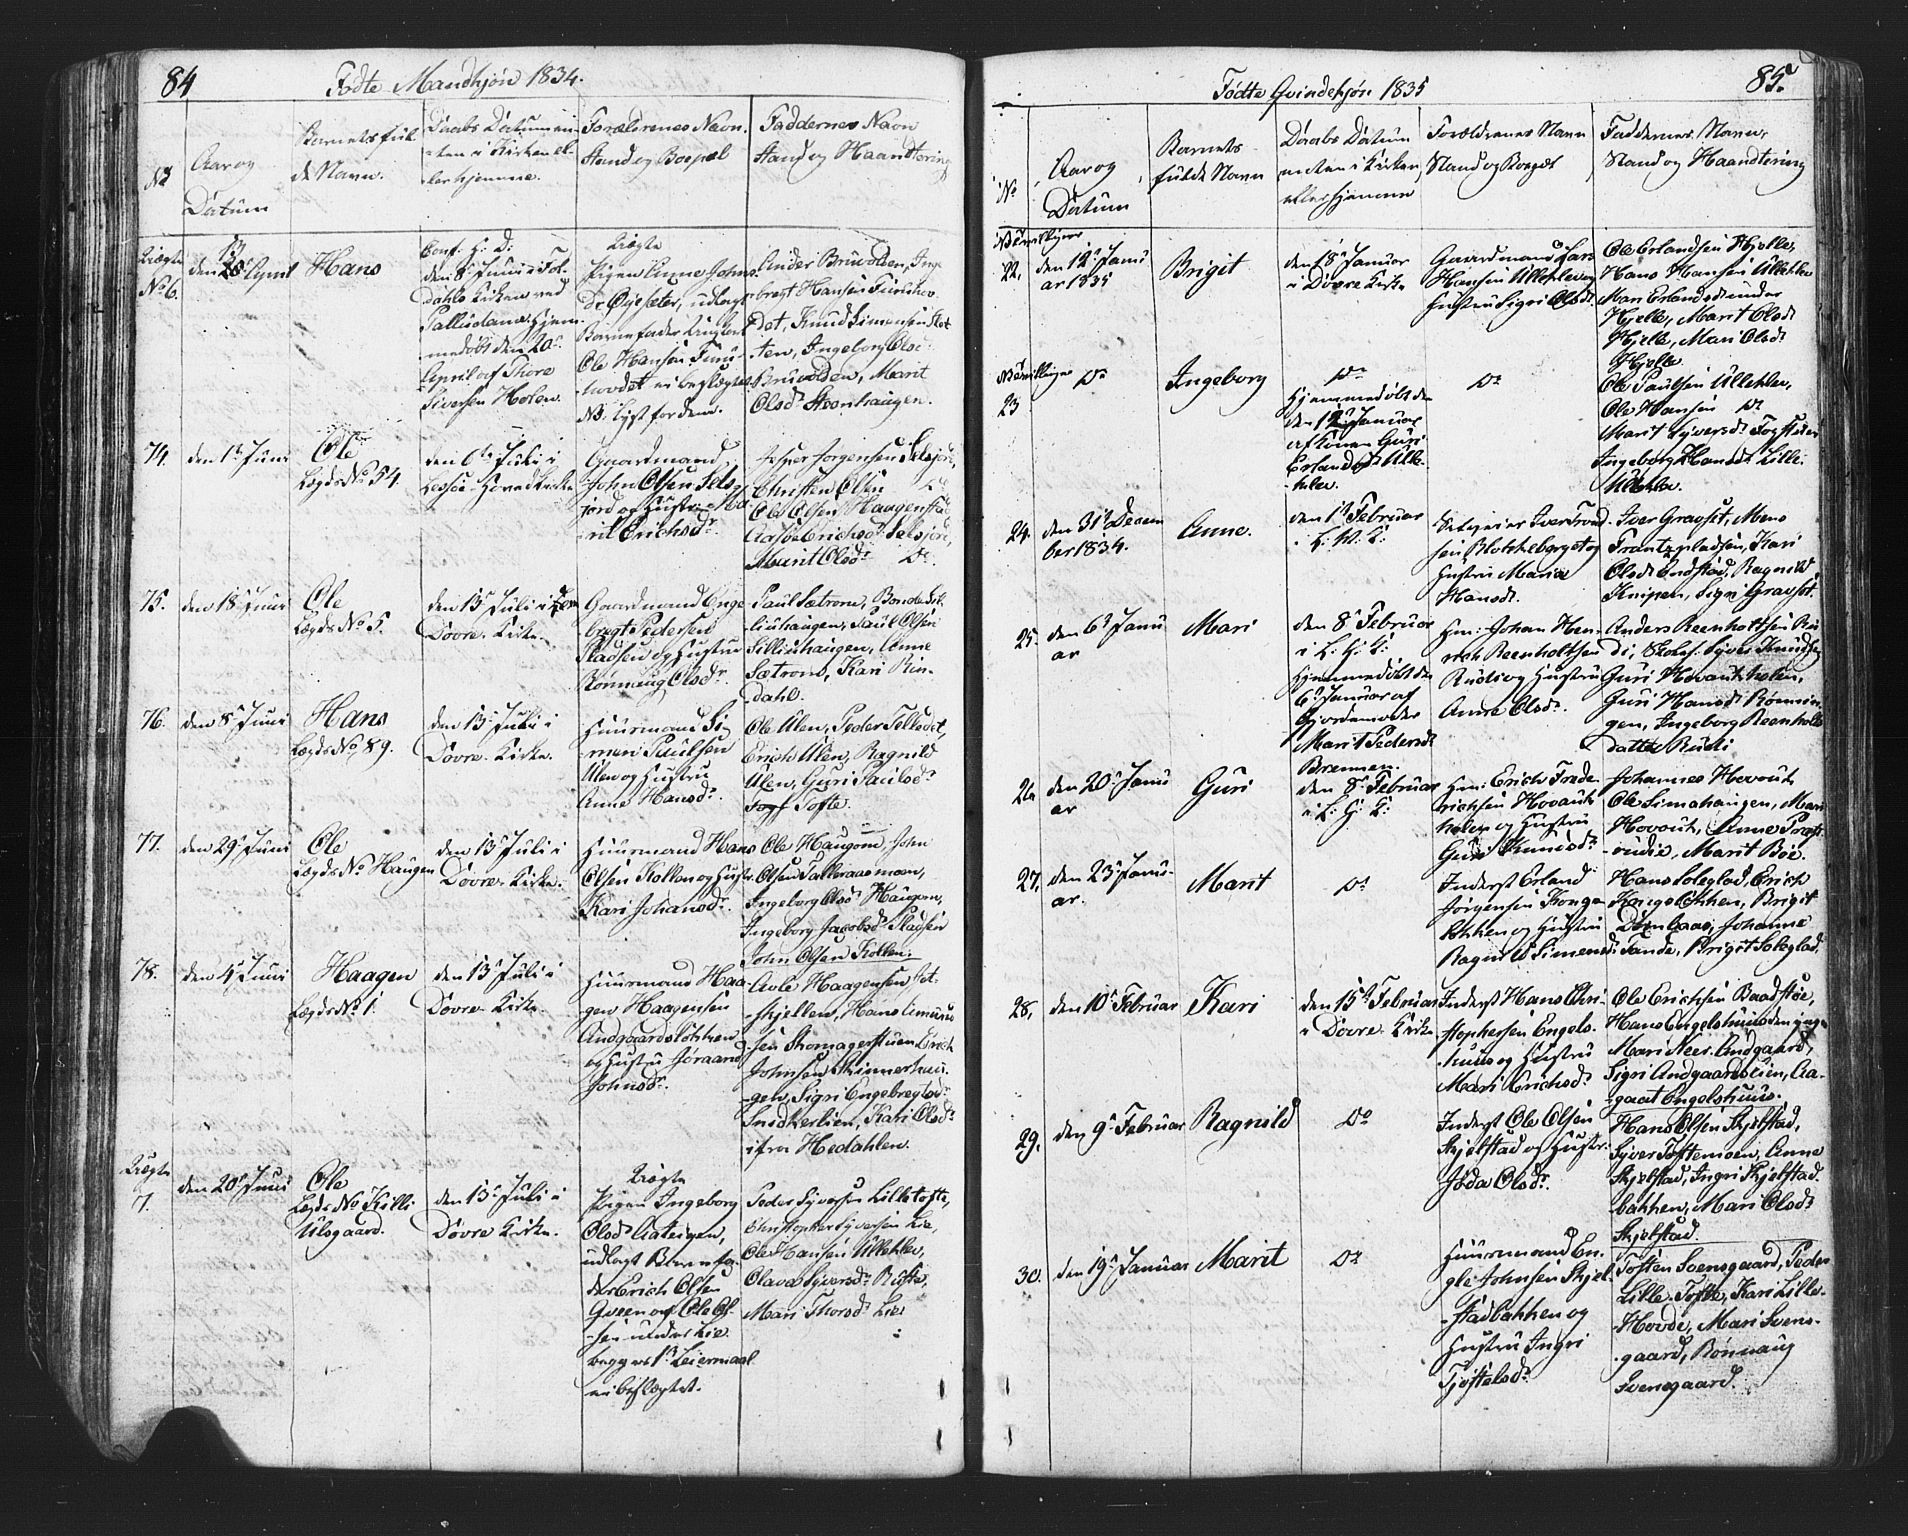 84
Fødte Mandkjøn 1834.
No
Aar og
Datum
Barnets ful-
de Navn.
Daabs Datum en-
-ten i Kirken el-
ler hjemme.
Forældrenes Navn.
Stand og Bopæl
Faddernes Navn
Stand og Haandtering
Uægte
No 6.
den April
Hans
Conf. H. D:
den 8de Juni i Fol-
dahls Kirken ved
Palludan. Hjem-
medøbt den 20de
April af Thore
Siversen Holen.
Uægte
Pigen Anne Johns-
Dr Øyesæter, udlagt
Barnefader Ungkarl
Ole Hansen Furu-
hovdet ei beslægtet
No 1 Lyst for dem.
Ander Bruvolden, Inge-
bregt Hansen Furuhov-
det, Knud Simensen Slet-
ten, Ingeborg Olsdr
Bruvolden, Marit
Olsdr Steenhaugen.
74.
den 1ste Juni
Ole
Lægds No 54.
den 6te Juli i
Lessøe Hoved Kirke
Gaardmand
John Olsen Sels-
jord og Hustru Ma-
rit Erichsdr
Jesper Jørgensen Selsjord,
Christen Olsen Do
Ole Olsen Haagenstad
Aase Erichsdr Selsjord,
Marit Olsdr Do.
75.
den 18de Juni
Ole
Lægds No 5.
den 13de Juli i
Dovre Kirke
Gaardmand Enge-
bregt Pedersen
Pladsen og Hustru
Rønnaug Olsdr
Paul Sætrom, Bonde Lil-
liehaugen, Paul Olsen
Lilliehaugen, Anne
Sætrom, Kari Rin-
dahl.
76.
den 8de Juni
Hans
Lægds No 89.
den 13de Juli i
Dovre Kirke.
Huusmand Si-
men Paulsen
Ulen og Hustru
Anne Hansdr
Ole Ulen, Peder Telledet,
Erich Ulen, Ragnild
Ulen, Guri Paulsdr
Tofte.
77.
den 29de Juni
Ole
Lægds No Haugen
den 13de Juli i
Dovre Kirke.
Huusmand Hans
Olsen Kollen og Hustr.
Kari Johansdr.
Ole Haugom, John
Olsen Talleraasmoen,
Ingeborg Olsdr Haugom,
Ingeborg Jacobsdr Pladsen
John Olsen Kollen.
78.
den 4de Juni
Haagen
Lægds No 1.
den 13de Juli i
Dovre Kirke
Huusmand Haa-
gen Haagensen
Andgaardsløkken
og Hustru Jøraand
Johnsdr.
Avle Haagensen Jet-
skjellen, Hans Simen-
sen Skomagerstuen Erich
Johnsen Skinnerhau-
gen, Sigri Engebregtsdr
Snidkerlien, Kari Olsdr
ifra Hedahlen.
Uægte
7.
den 20de Juni
Ole
Lægds No Killi
Ulsgaard.
den 13de Juli i
Dovre Kirke.
Uægte
Pigen Ingeborg
Olsdr Aateigen,
udlagt Barnefa-
der Erich Olsen
Qveen af Ole Ol-
sen under Lie
begges 1ste Leiermaal
ei beslægtet.
Peder Syversen Lilletofte,
Christopher Syversen Lie,
Ole Hansen Ullekleiv,
Olava Syversdr Rusten
Mari Thorsdr Lie

85.
Fødte Qvindekjøn 1835
No
Aar og
Datum
Barnets
fulde Navn
Daabs Datum
enten i Kirken
eller hjemme
Forældrenes Navn
Stand og Bopæl
Faddernes Navn,
Stand og Haandtering
Tvillinger
22.
den 12te Janu-
ar 1835
Brigit
den 18de Januar
i Dovre Kirke
Gaardmand Lars
Hansen Ullekleiv og
Hustru Sigri Olsdr
Ole Erlandsen Hjelle,
Hans Hansen Ullekleiv
Mari Erlandsdr under
Hjelle, Marit Olsdr
Hjelle, Mari Olsdr
Hjelle
Tvillinger
23
Do
Ingeborg
Do
Hjemmedøbt den
den 12te Januar
af Konen Guri
Erlandsdr Ulle-
kleiv.
Do
Ole Paulsen Ullekleiv,
Ole Hansen Do
Marit Syversdr
Ingeborg Hansdr Lille
Ullekleiv.
24.
den 31te Decem-
ber 1834.
Anne.
den 1ste Februar
i L. H. K.
Iver Trond-
sen Blokkeberget og
Hustru Maria
Hansdr.
Iver Gravset, Mons
Frantzpladsen, Kari
Olsdr Endstad, Ragnild
Knipen, Sigri Gravset.
25.
den 6te Janu-
ar
Mari
den 8de Februar
i L. H. K.
Hjemmedøbt den
6te Januar af
Gjordemoder
Marit Pedersdr
Brennen.
Hm: Johan Hen-
rich Reenholtsen
Ruds og Hustru
Anne Olsdr.
Anders Reenholtsen Ru-
di, Skolel. Syver Knudsen
Guri Hovautkolen,
Guri Hansdr Rønnin-
gen, Ingeborg Reenholts-
datter Rudi
26
den 20de Janu-
ar
Guri
den 8de Februar
i L. H. K.
Hm: Erich Frede-
richsen Hovaut-
kolen og Hustru
Guri Knudsdr
Johannes Hovout
Ole Simahaugen, Mari
Hovout, Anne Præst-
rudie, Marit Bøe.
27.
den 23de Janu-
ar.
Marit
Do
Inderst Erland
Jørgensen Konge-
løkken og Hustru
Ragnild Simensdr.
Hans Soleglad, Erich
Kongsløkken, Brigit
Dombaas, Johanne
Sande, Brigit Soleglad.
28.
den 10de Februar
Kari
den 15de Februar
i Dovre Kirke
Inderst Hans Chri-
stophersen Engels-
huus og Hustru
Mari Erichsdr
Ole Erichsen Baadstøe,
Hans Engelshuus den yngre
Mari Neer-Andgaard,
Sigri Andgaardslien, Aa-
gaat Engelshuus.
29.
den 9de Februar
Ragnild
Do
Inderst Ole Olsen
Skjelstad og Hustr:
Jøda Olsdr.
Hans Olsen Skjelstad,
Syver Toftemoen, Anne
Skjelstad, Ingri Skjelstad-
bakken, Mari Olsdr
Skjelstad.
30.
den 19de Januar
Marit
Do
Huusmand En-
gle Johnsen Skjel-
stadbakken og
Hustru Ingri
Tjøstelsdr
Tosten Svensgaard, Peder
Lille-Tofte, Kari Lille-
Hovde, Mari Svens-
gaard, Rønnaug
Svensgaard.